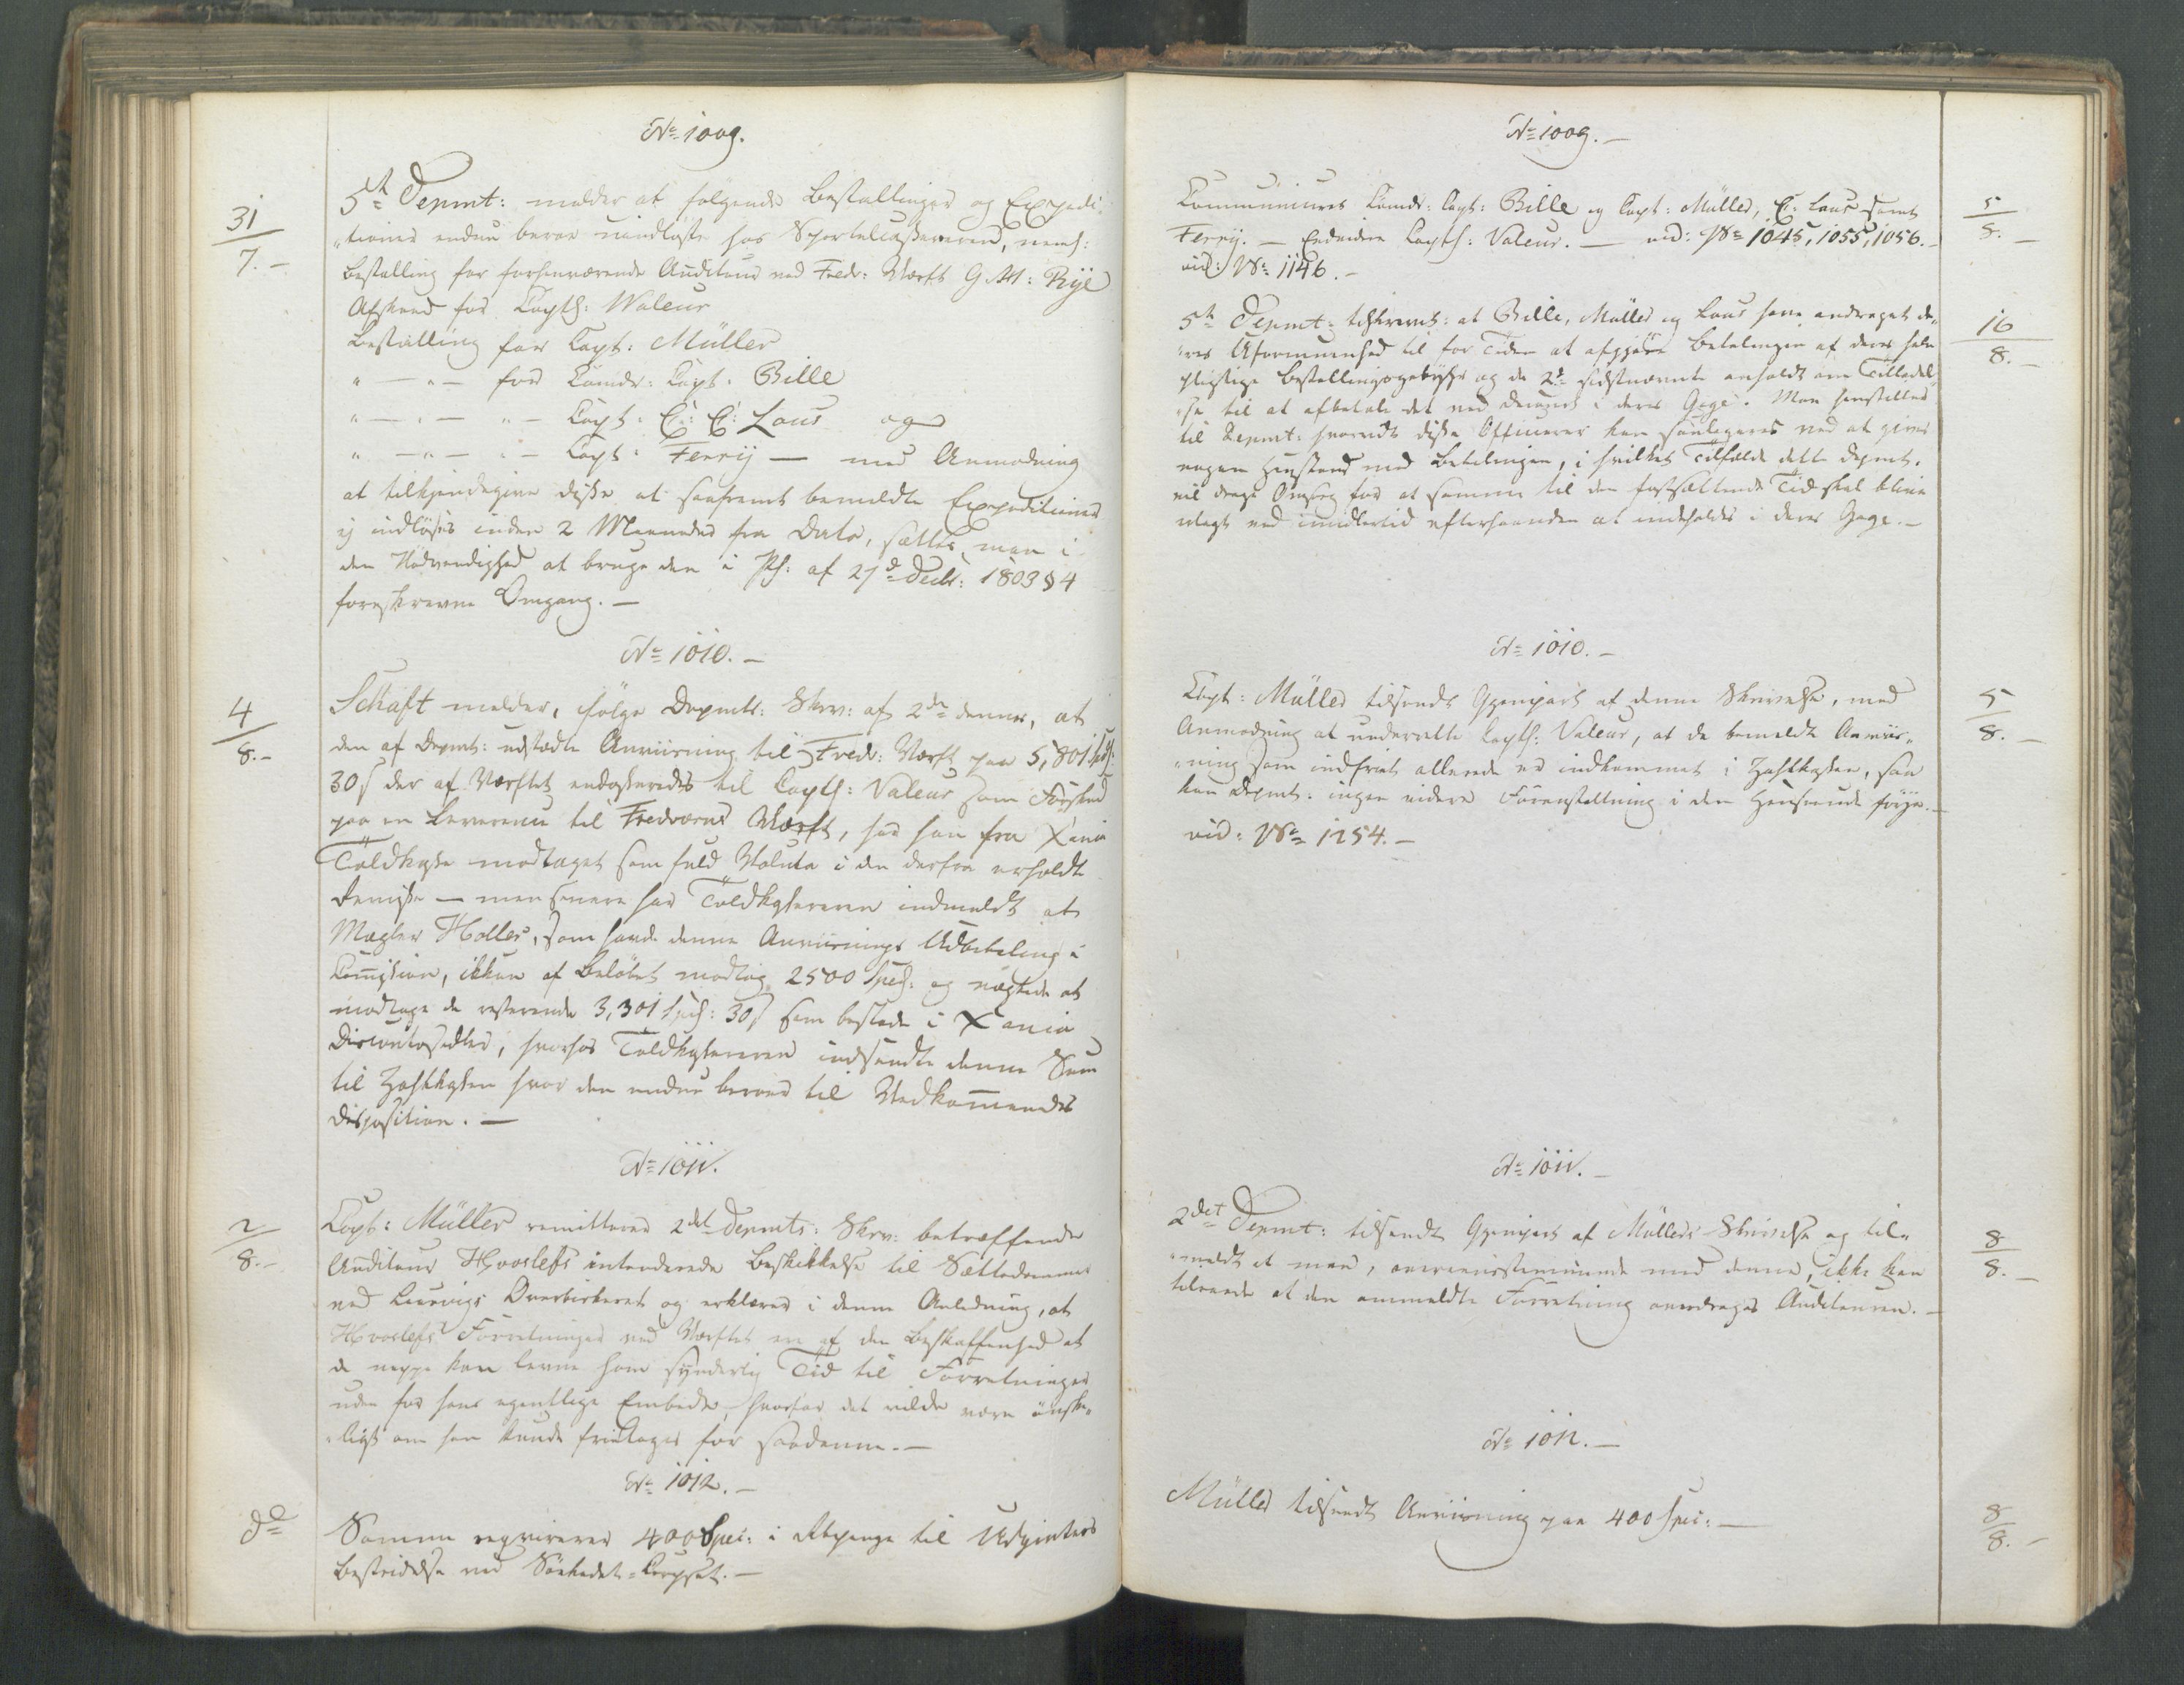 No 1009.
31
7.-
5te Depmt: melder at følgende Bestallinger og Expedi-
"tioner endnu beroe uindløste hos Sportelcasserern, neml:
Bestalling for forhenværende Auditeur ved Fredr: Værft G. M: Rye
Afskeed for Captl: Waleur
Bestalling for Capt: Müller
" — " — for Comdr: Capt: Bille
" — " — " — Capt: C: C: Lous og
" — " — " — Capt: Ferry — med Anmodning
at tilkjendegive disse at saafremt bemeldte Expeditioner
ej indløses inden 2 Maaneder fra Dato, sættes man i
den Nødvendighed at bruge den i Pl: af 27de Decbr: 1803 § 4
foreskrevne Omgang. —
No 1010. —
4
8.-
Schaft melder, ifølge Depmts: Skriv: af 2den dennes, at
den af Depmt: udstædte Anviisning til Fredr: Værft paa 5,801 Spd:
30 s der af Værftet endosseredes til Captl: Valeur som Forskud
paa en Leverence til Fredværns Værft, har han fra Xania
Toldkasse modtaget som fuld Valuta i den derfra erholdte
Remisse — men senere har Toldkassereren indmeldt at
Mægler Holler, som havde denne Anviisnings Udbetaling i
Comission, ikkun af Beløbet modtog 2500 Spec: og nægtede at
modtage de resterende 3,301 Spec: 30 s som bestode i Xania
Discontosedler, hvorfor Toldkassereren indsendte denne Sum
til Zahlkassen hvor den endnu beroer til Vedkommendes
Disposition. —
No 1011.
2
8.-
Capt: Müller remitterer 2det Depmts: Skriv: betræffende
Auditeur Hvoslefs intenderede Beskikkelse til Sættedommer
ved Laurvigs Overbirkeret og erklærer i denne Anledning, at
Hvoslefs Forretninger ved Værftet ere af den Beskaffenhed at
de neppe kan levne ham synderlig Tid til Forretninger
uden for hans egentlige Embede, hvorfor det vilde være ønske-
"ligt om han kunde fritages for saadanne. —
No 1012. —
do
Samme reqvirerer 400 Spec: i Rbpenge til Udgifters
Bestridelse ved Søekadet-Corpset. —
No 1009. —
Communiceret Comdr: Capt: Bille og Capt: Müller, C: Lous samt
Ferry. — Endvidere Captl: Valeur. — vid: No 1045, 1055, 1056. —
vid: No 1146. —
5
8. —
5te Depmt: tilskrevet: at Bille, Müller og Lous have andraget de-
"res Uformuenhed til for Tiden at afgjøre Betalingen af deres skyl
pligtige Bestallingsgebyhr og de 2de sidstnævnte anholdt om Tilladel-
"se til at afbetale det ved Decourt i deres Gage. Man henstiller
til Depmt: hvorvidt disse Officerer kan føielegeres ved at gives
nogen Henstand med Betalingen, i hvilket Tilfælde dette Depmt.
vil drage Omsorg for at samme til den fastsættende Tid skal blive
erlagt ved imidlertid efterhaanden at indeholdes i deres Gage. —
16
8. —
No 1010. —
Capt: Müller tilsendt Gjenpart af denne Skrivelse, med
Anmodning at underrette Captl: Valeur, at da bemeldte Anviis-
"ning som indfriet allerede er indkommet i Zahlkassen, saa
kan Depmt: ingen videre Foranstaltning i den Henseende føye. —
vid: No 1254. —
5
8. —
No 1011. —
2det Depmt: tilsendt Gjenpart af Müllers Skrivelse og til-
"meldt at man, overeensstemmende med denne, ikke kan
tilraade at den ommeldte Forretning overdrages Auditeuren. —
8
8. —
No 1012. —
Müller tilsendt Anviisning paa 400 Spec: —
8
8. —